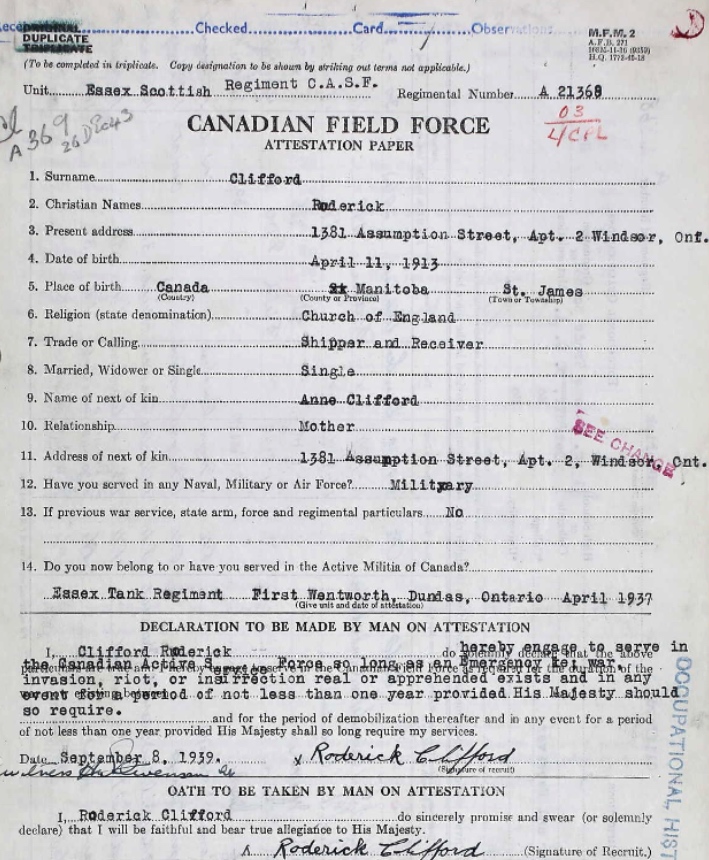 Checked Card Observations
ORIGINAL
DUPLICATE
TRIPLICATE
M.F.M. 2
A.F.B. 271
H.Q. 1772-45-18
(To be completed in triplicate. Copy designation to be shown by striking out terms not applicable.)
Unit Essex Scottish Regiment C.A.S.F. Regimental Number A 21368
03
L/CPL
A 369
26 Dec 43
CANADIAN FIELD FORCE
ATTESTATION PAPER
1. Surname Clifford
2. Christian Names Roderick
3. Present address 1381 Assumption Street, Apt. 2 Windsor, Ont.
4. Date of birth April 11, 1913
5. Place of birth Canada Manitoba St. James
(Country) (County or Province) (Town or Township)
6. Religion (state denomination) Church of England
7. Trade or Calling Shipper and Receiver
8. Married, Widower or Single Single
9. Name of next of kin Anne Clifford
10. Relationship Mother
SEE CHANGE
11. Address of next of kin 1381 Assumption Street, Apt. 2, Windsor, Ont.
12. Have you served in any Naval, Military or Air Force? Military
13. If previous war service, state arm, force and regimental particulars No
14. Do you now belong to or have you served in the Active Militia of Canada?
Essex Tank Regiment First Wentworth, Dundas, Ontario April 1937
(Give unit and date of attestation)
DECLARATION TO BE MADE BY MAN ON ATTESTATION
I, Clifford Roderick do solemnly declare that the above hereby engage to serve in
the Canadian Active Service Force so long as an Emergency i.e. war,
invasion, riot, or insurrection real or apprehended exists and in any
event for a period of not less than one year provided His Majesty should
so require.
and for the period of demobilization thereafter and in any event for a period
of not less than one year provided His Majesty shall so long require my services.
Date September 8, 1939. x Roderick Clifford
(Signature of recruit)
witness
OATH TO BE TAKEN BY MAN ON ATTESTATION
I, Roderick Clifford do sincerely promise and swear (or solemnly
declare) that I will be faithful and bear true allegiance to His Majesty.
Roderick Clifford (Signature of Recruit.)
OCCUPATIONAL HIST